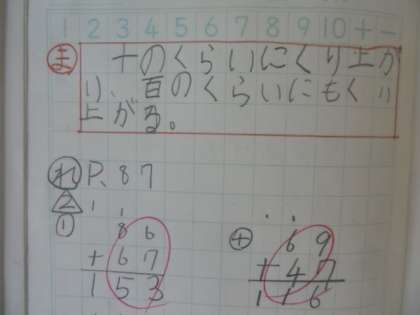 1 2 3 4 5 6 7 8 9 10 + −
ま 十のくらいにくり上が
り、百のくらいにもくり
上がる。
れ P、87
2
① 86
+67
153
+ 69
+47
116